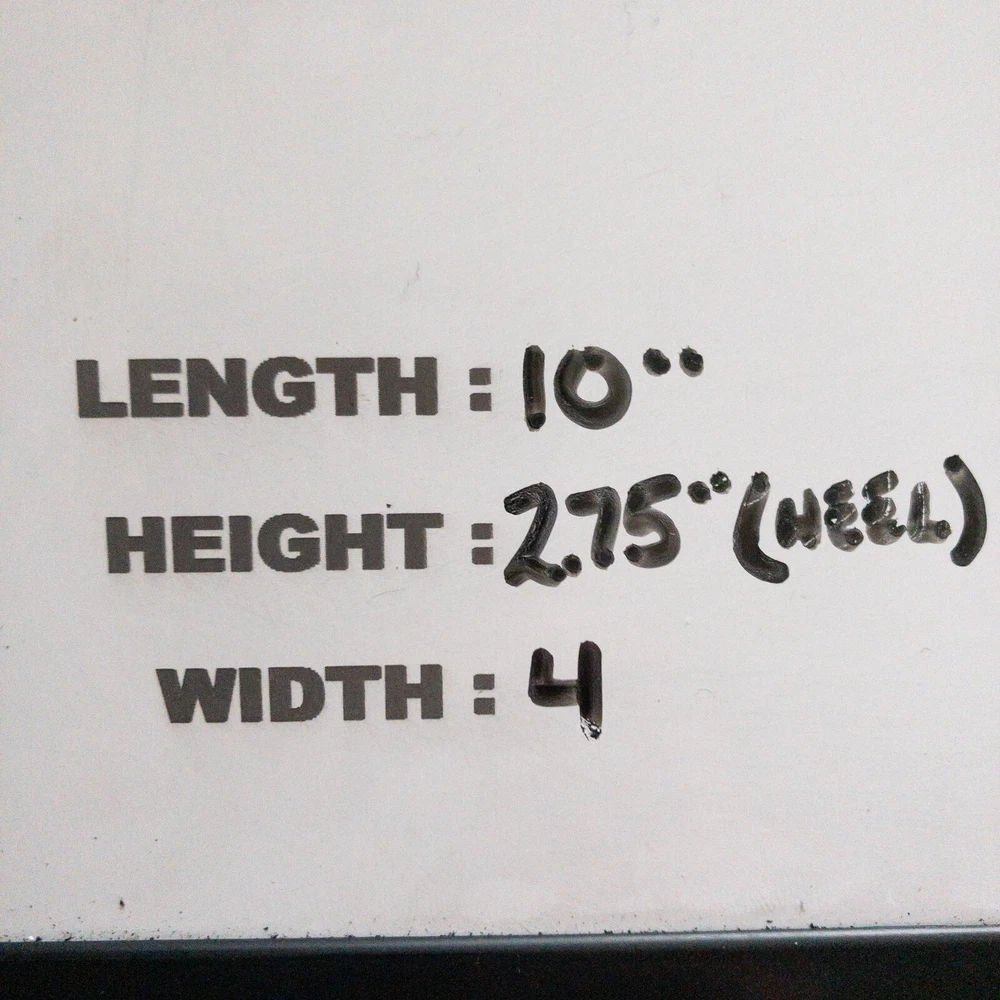 LENGTH : 10"
HEIGHT : 2.75" (HEEL)
WIDTH : 4